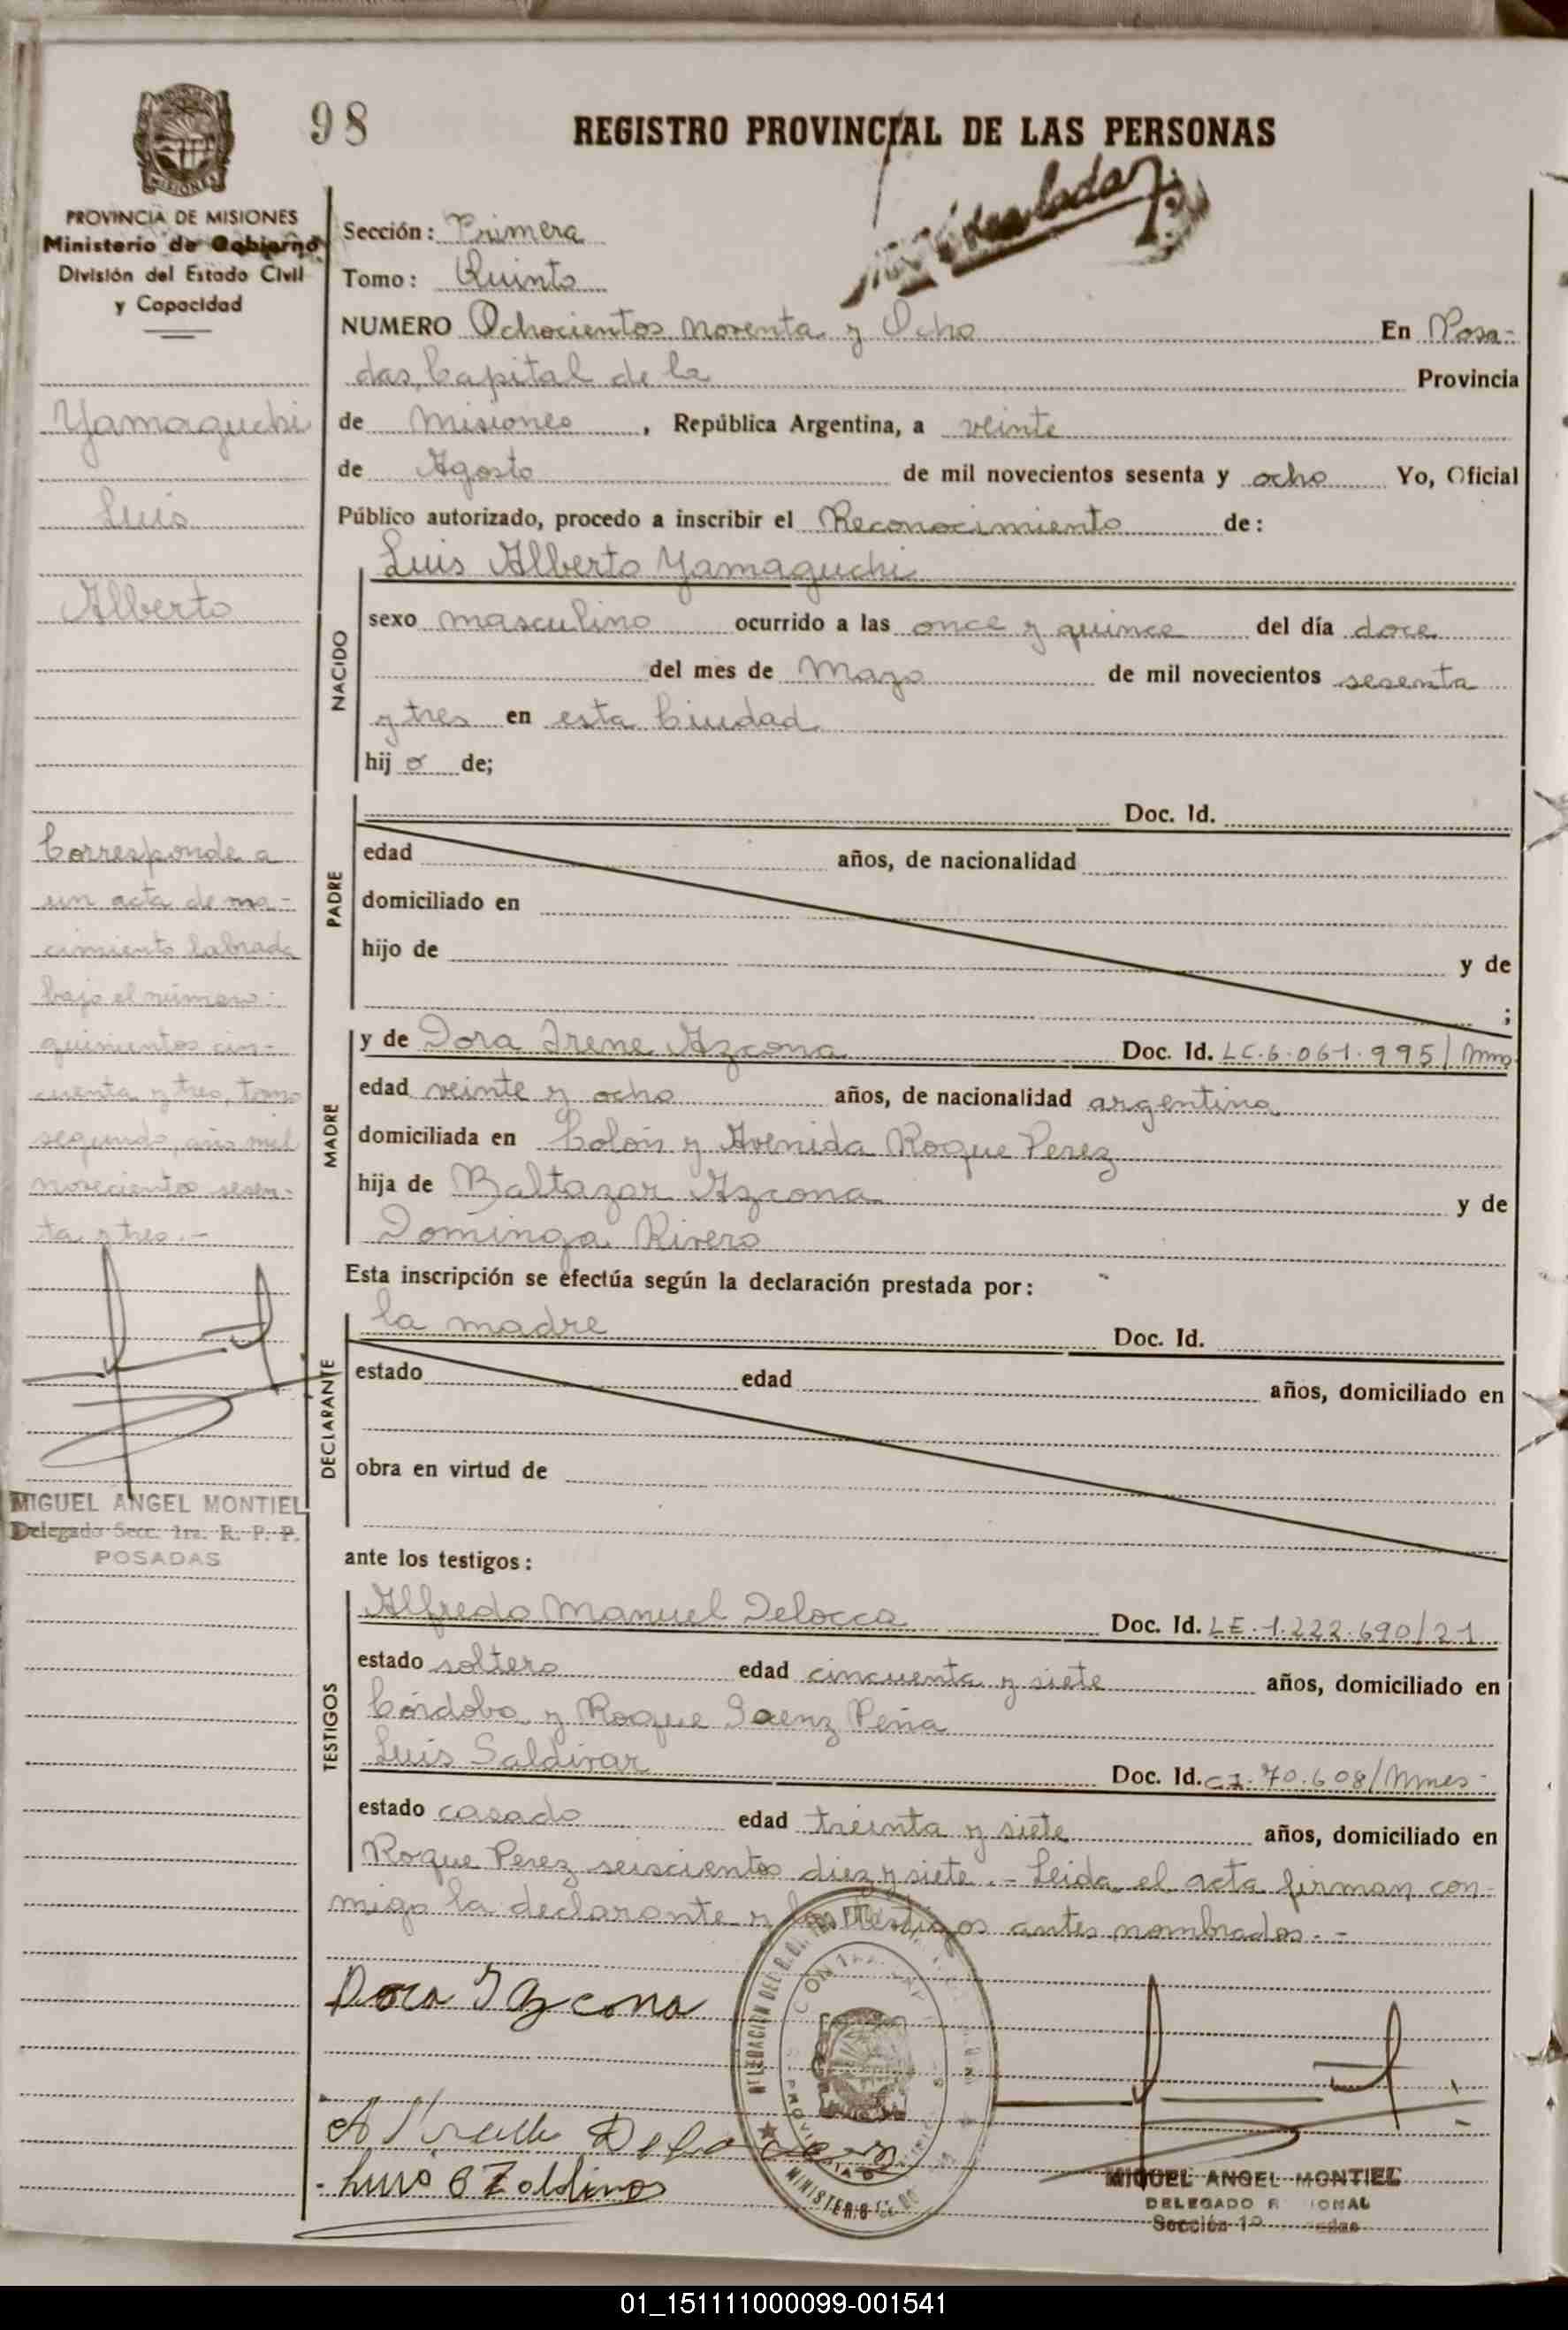 98
REGISTRO PROVINCIAL DE LAS PERSONAS
MISIONES
PROVINCIA DE MISIONES
Ministerio de Gobierno
División del Estado Civil
y Capacidad
Yamaguchi
Luis
Alberto
Corresponde a
un acta de na-
cimiento labrada
bajo el número:
quinientos cin-
cuenta y tres, tomo
segundo, año mil
novecientos sesen-
ta y tres.-
MIGUEL ANGEL MONTIEL
Delegado Secc. 1ra. R. P. P.
POSADAS
Sección: Primera
Tomo: Quinto
NUMERO Ochocientos noventa y Ocho En Posa-
das, Capital de la Provincia
de Misiones, República Argentina, a veinte
de Agosto de mil novecientos sesenta y ocho Yo, Oficial
Público autorizado, procedo a inscribir el Reconocimiento de:
NACIDO
Luis Alberto Yamaguchi
sexo masculino ocurrido a las once y quince del día doce
del mes de Mayo de mil novecientos sesenta
y tres en esta Ciudad
hij o de;
PADRE
Doc. Id.
edad años, de nacionalidad
domiciliado en
hijo de y de
;
MADRE
y de Dora Irene Azcona Doc. Id. LC.6.061.995/Mnes
edad veinte y ocho años, de nacionalidad argentina
domiciliada en Colón y Avenida Roque Perez
hija de Baltazar Azcona y de
Dominga Rivero
Esta inscripción se efectúa según la declaración prestada por:
DECLARANTE
la madre Doc. Id.
estado edad años, domiciliado en
obra en virtud de
ante los testigos:
TESTIGOS
Alfredo Manuel Delocca Doc. Id. LE.1.222.690/21
estado soltero edad cincuenta y siete años, domiciliado en
Córdoba y Roque Saenz Peña
Luis Saldivar Doc. Id. CI.70.608/Mnes
estado casado edad treinta y siete años, domiciliado en
Roque Perez seiscientos diez y siete.- Leida el acta firman con-
migo la declarante y los testigos antes nombrados.-
Dora I Azcona
MINISTERIO
MIGUEL ANGEL MONTIEL
DELEGADO
Sección 1ª
01_151111000099-001541